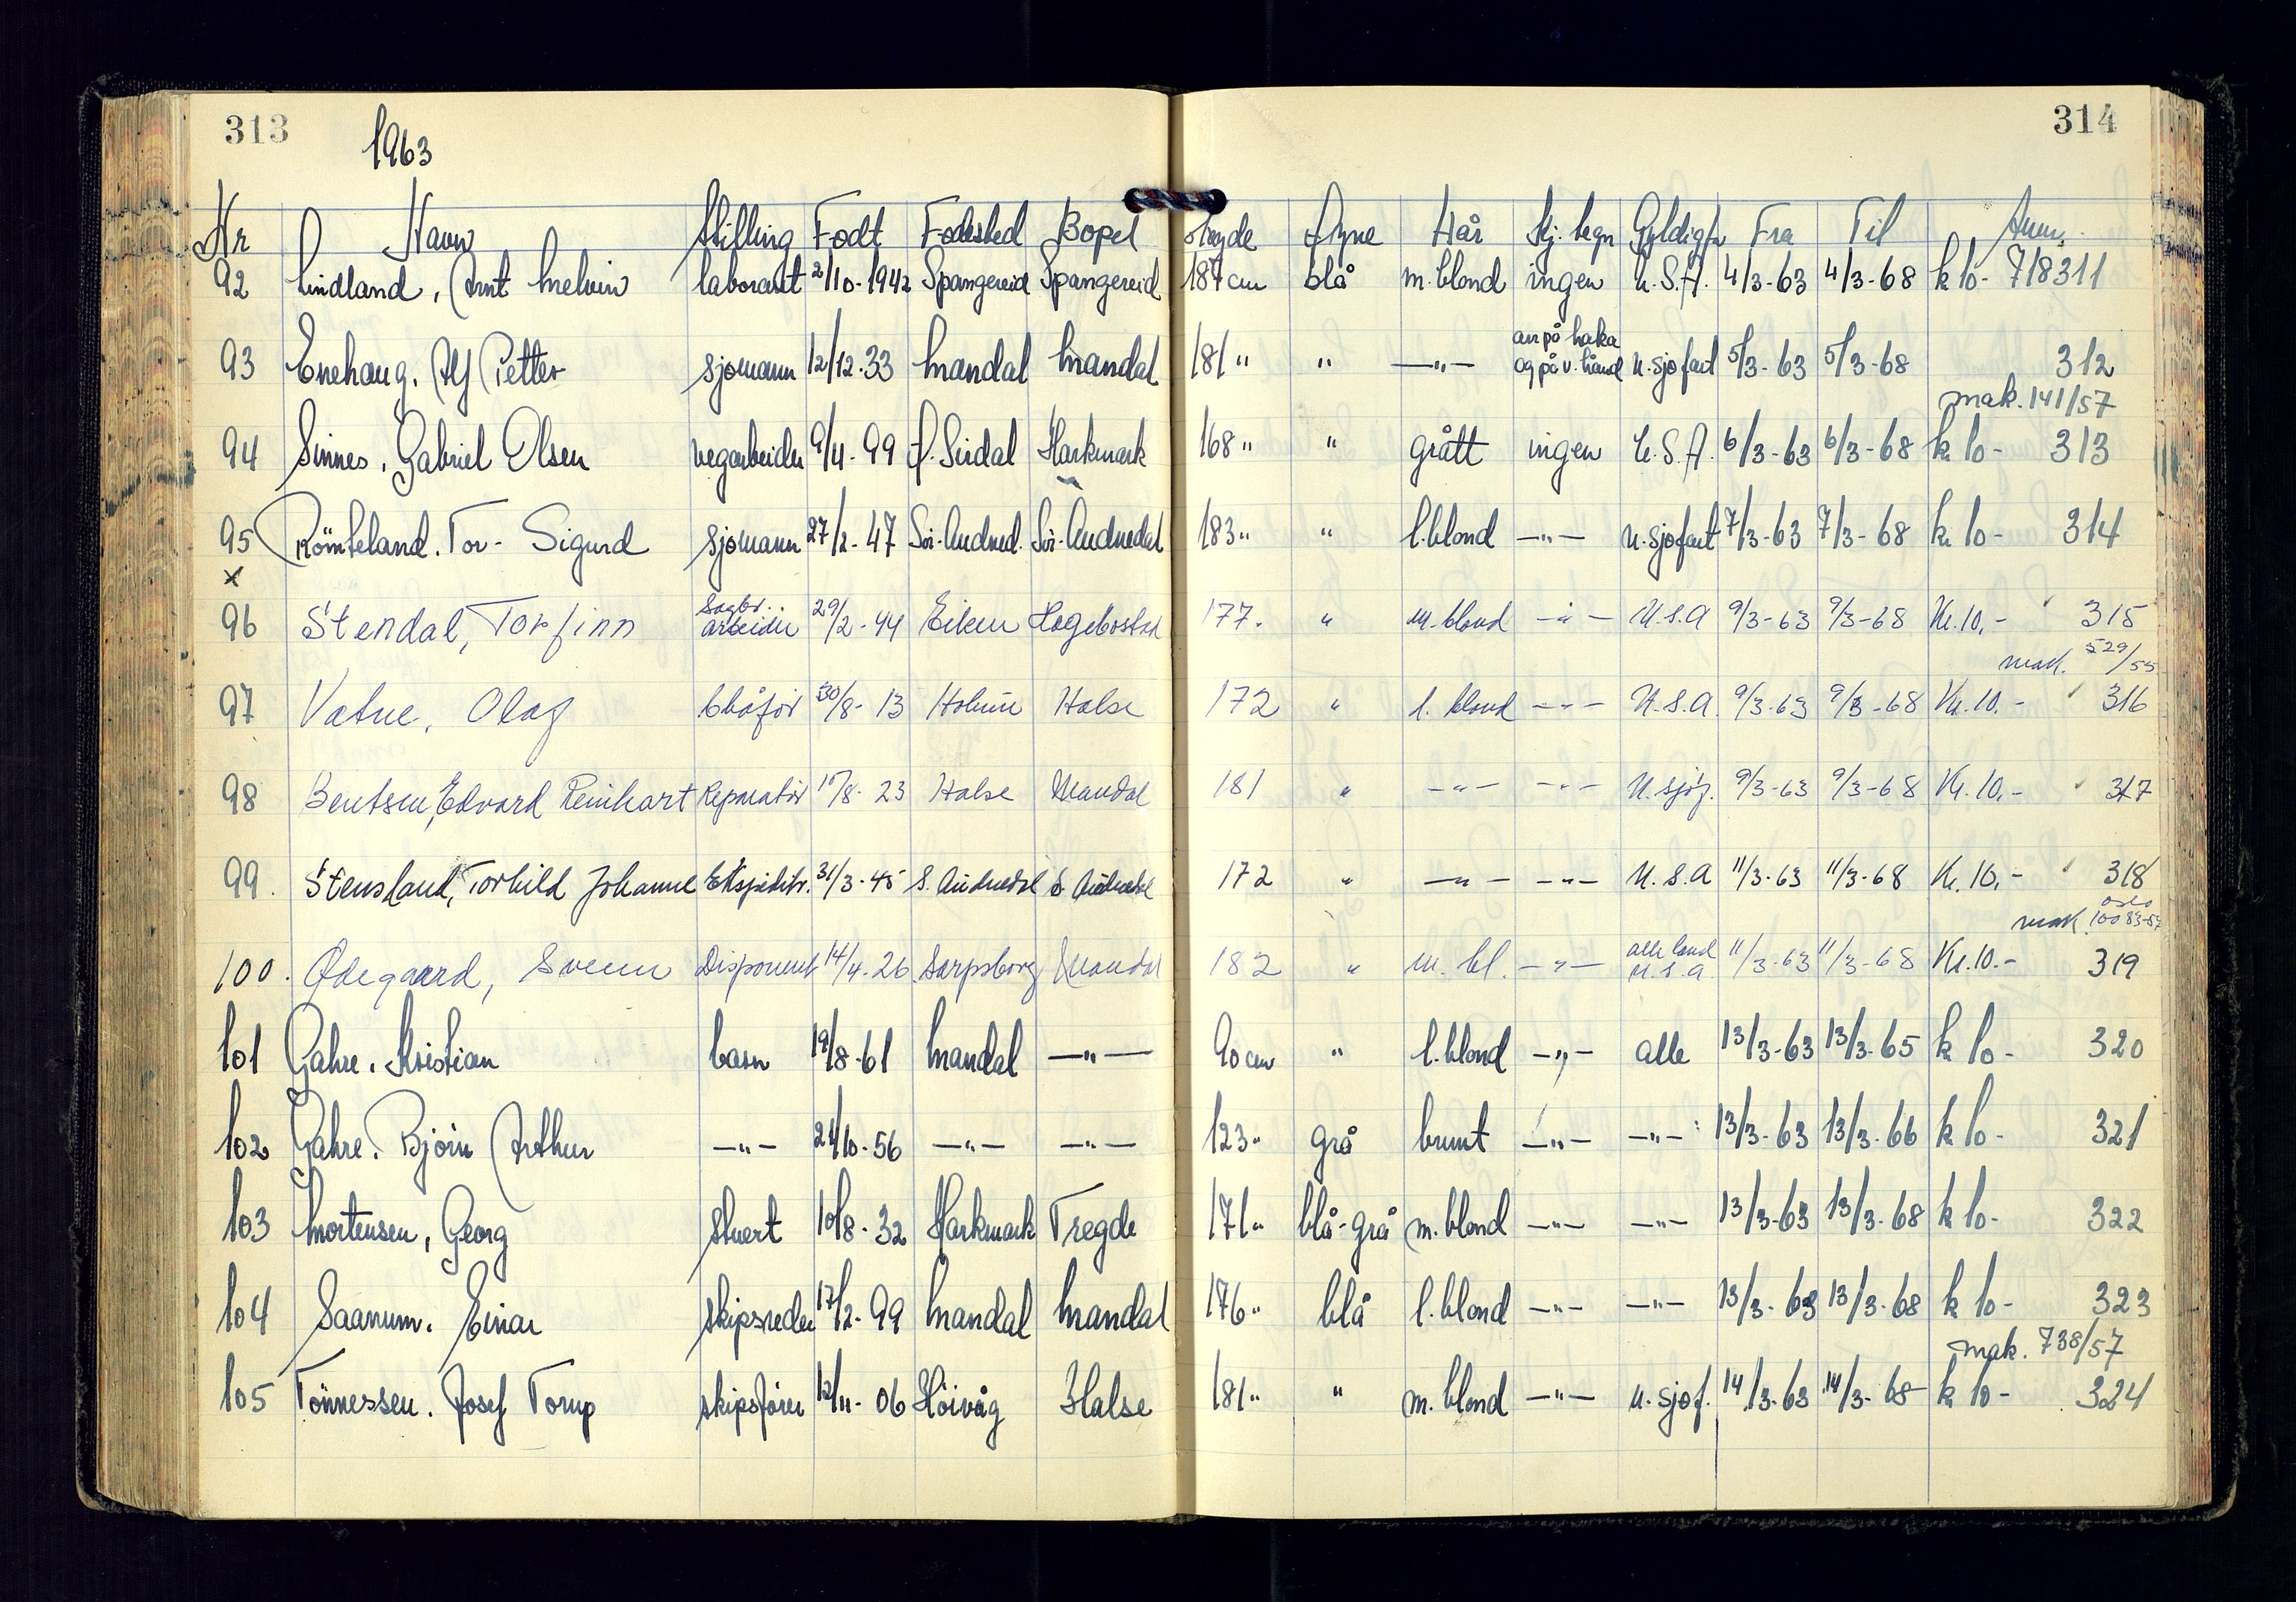 313
1963
314
Nr Navn Stilling Født Fødested Bopel Høyde Øyne Hår Kj. tegn Gyldigh. Fra Til Anm.
92 Lindland, Arnt Melvin laborant 2/10-1942 Spangereid Spangereid 187 cm blå m. blond ingen U.S.A. 4/3-63 4/3-68 k 10- 718311
arr på haka
93 Enehaug. Alf Petter sjømann 12/12-33 Mandal Mandal 181 " " —"— og på v. hånd u. sjøfart 5/3-63 5/3-68 312
mak. 141/57
94 Sinnes, Gabriel Olsen vegarbeider 9/4-99 Ø. Sirdal Harkmark 168 " " grått ingen U.S.A. 6/3-63 6/3-68 k 10- 313
95 Römteland. Tor-Sigurd sjømann 27/2-47 Sör-Audned. Sör-Audnedal 183 " " l. blond —"— u. sjøfart 7/3-63 7/3-68 k 10- 314
x
96 Stendal, Torfinn Sagbr. arbeider 29/2-44 Eiken Hægebostad 177. " m. blond —"— U.S.A 9/3-63 9/3-68 Kr. 10,- 315
mak. 529/55
97 Vatne, Olag 30/8-13 Holum Halse 172 " l. blond —"— U.S.A. 9/3-63 9/3-68 Kr. 10.- 316
98 Bentsen, Edvard Reinhart Reparatör 17/8-23 Halse Mandal 181 " —"— —"— U. sjöf. 9/3-63 9/3-68 Kr. 10,- 317
99. Stensland, Torhild Johanne Ekspeditr. 31/3-45 S. Audnedal S. Audnedal 172 " —"— —"— U.S.A 11/3-63 11/3-68 Kr. 10,- 318
Oslo
mak. 10083-57
100. Ødegaard, Svenn Disponent 14/4-26 Sarpsborg Mandal 182 " m. bl. —"— alle land U.S.A. 11/3-63 11/3-68 Kr. 10.- 319
101 Gahre. Kristian barn 19/8-61 Mandal —"— 90 cm " l. blond —"— alle 13/3-63 13/3-65 k 10- 320
102 Gahre. Björn Arthur —"— 24/10-56 —"— —"— 123 " grå brunt —"— —"— 13/3-63 13/3-66 k 10- 321
103 Mortensen, Georg stuert 10/8-32 Harkmark Tregde 171 " blå-grå m. blond —"— —"— 13/3-63 13/3-68 k 10- 322
104 Saanum. Einar skipsreder 17/2-99 Mandal Mandal 176 " blå l. blond —"— —"— 13/3-63 13/3-68 k 10- 323
mak. 738/57
105 Tönnessen. Josef Torup skipsfører 12/11-06 Höivåg Halse 181 " " m. blond —"— u. sjøf. 14/3-63 14/3-68 k 10- 324